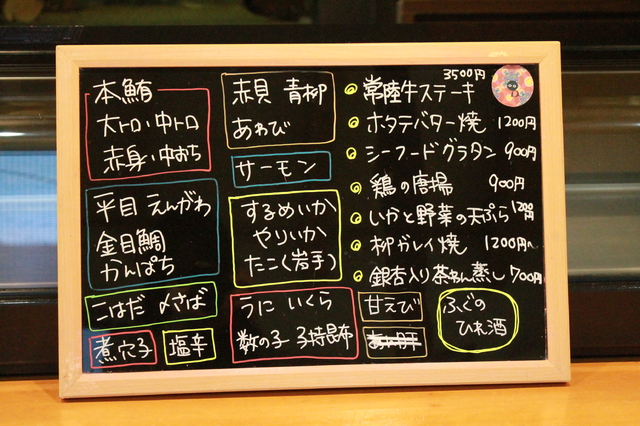 本鮪
大トロ・中トロ
赤身・中おち
平目 えんがわ
金目鯛
かんぱち
こはだ 〆さば
煮穴子
塩辛
赤貝 青柳
あわび
サーモン
するめいか
やりいか
たこ(岩手)
うに いくら
数の子 子持昆布
甘えび
3500円
常陸牛ステーキ
ホタテバター焼 1200円
シーフードグラタン 900円
鶏の唐揚 900円
いかと野菜の天ぷら 1200円
柳ガレイ焼 1200円~
銀杏入り茶わん蒸し 700円
ふぐの
ひれ酒